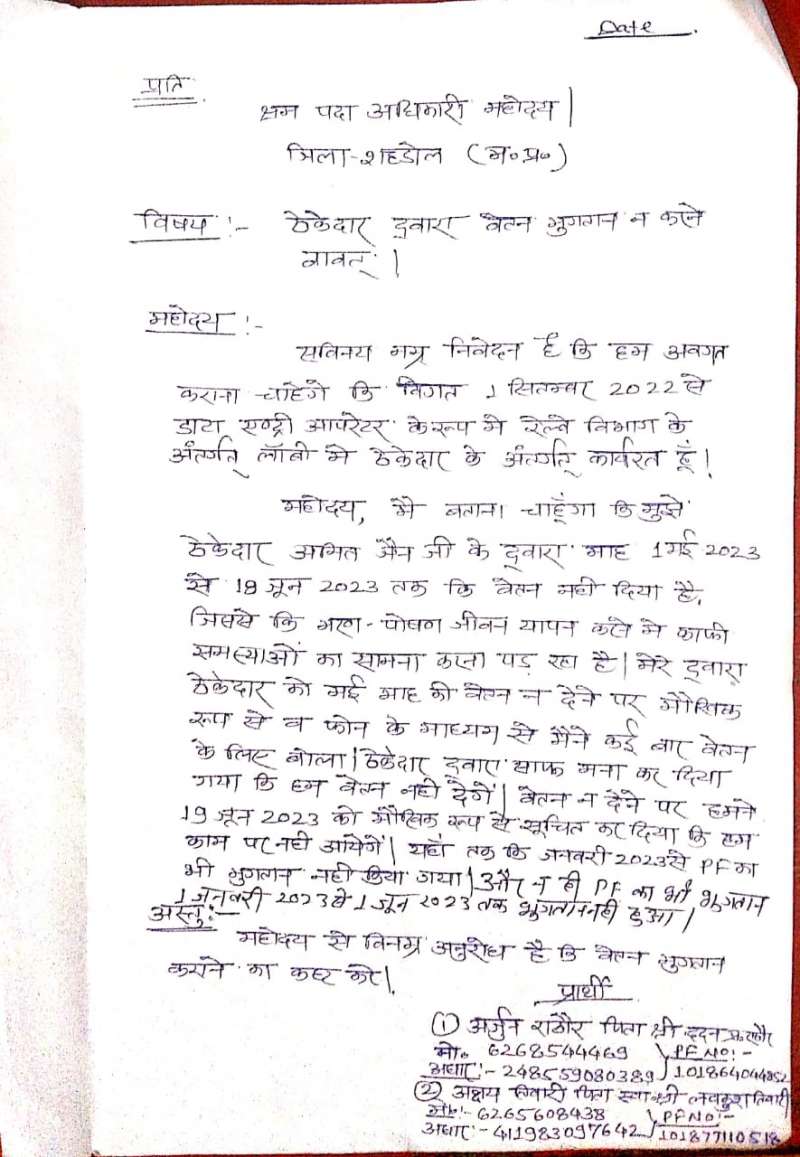 Date
प्रति
क्षम पदा अधिकारी महोदय|
जिला-शहडोल (म०प्र०)
विषय :- ठेकेदार द्वारा वेतन भुगतान न करने
बावत् |
महोदय :-
सविनय नम्र निवेदन है कि हम अवगत
कराना चाहेगे कि विगत 1 सितम्बर 2022 से
डाटा एण्ट्री आपरेटर के रूप मे रेल्वे विभाग के
अंतर्गत् लॉबी मे ठेकेदार के अंतर्गत् कार्यरत हूँ!
महोदय, मै बताना चाहूँगा कि मुझे
ठेकेदार अमित जैन जी के द्वारा माह 1 मई 2023
से 19 जून 2023 तक कि वेतन नही दिया है,
जिससे कि भरण-पोषण जीवन यापन करने मे काफी
समस्याओं का सामना करना पड़ रहा है| मेरे द्वारा
ठेकेदार को मई माह की वेतन न देने पर मौखिक
रूप से व फोन के माध्यम से मैने कई बार वेतन
के लिए बोला| ठेकेदार द्वारा साफ मना कर दिया
गया कि हम वेतन नही देगें| वेतन न देने पर हमने
19 जून 2023 को मौखिक रूप से सूचित कर दिया कि हम
काम पर नही आयेगें| यहाँ तक कि जनवरी 2023 से PF का
भी भुगतान नही किया गया| और न ही PF का भी भुगतान
1 जनवरी 2023 से 1 जून 2023 तक भुगतान नही हुआ|
अस्तु :-
महोदय से विनम्र अनुरोध है कि वेतन भुगतान
कराने का कष्ट करे|
प्रार्थी
(1) अर्जुन राठौर पिता श्री ददन राठौर
मो० 6268544469 PF NO :-
अधार :- 248559080389 101864044852
(2) अक्षय तिवारी पिता स्व० श्री लवकुश तिवारी
मो० :- 6265608438 PF NO :-
अधार :- 411983097642 101877110518